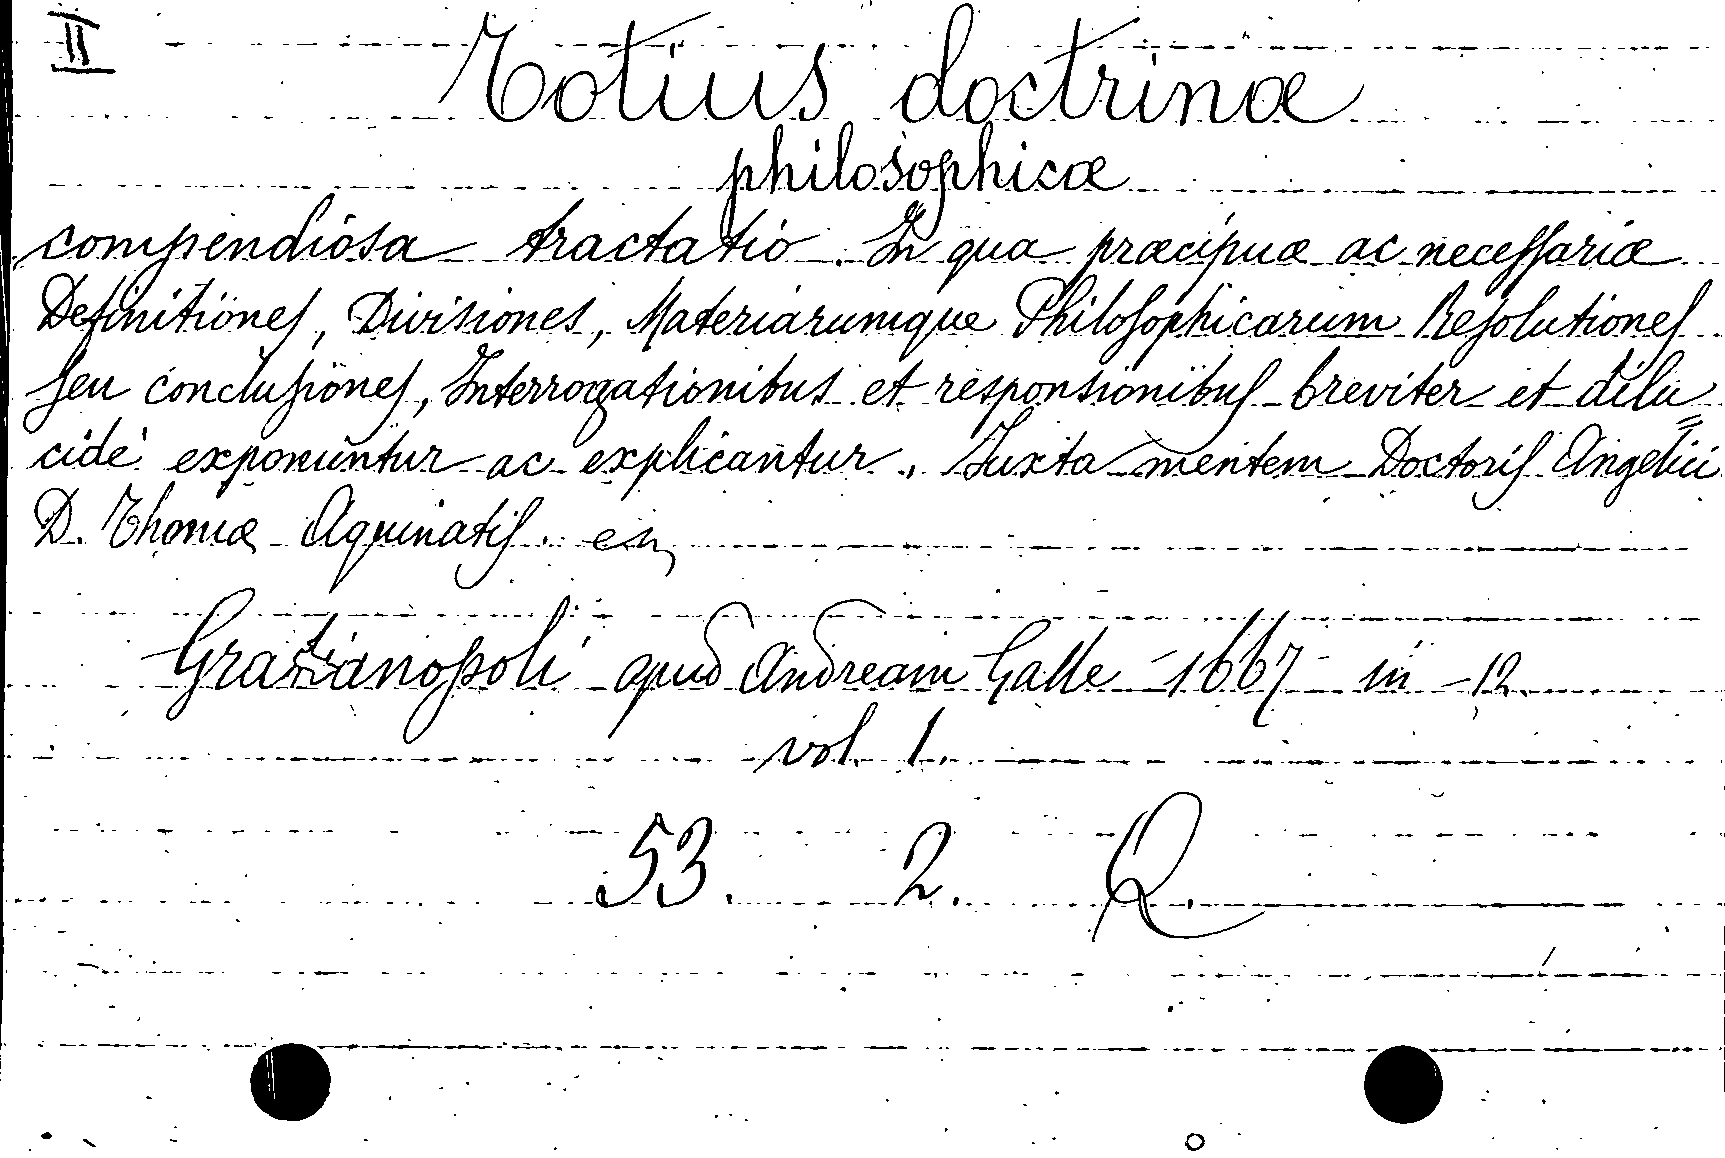 II
Totius doctrinæ
philosophicæ
compendiosa tractatio. In qua præcipuæ ac necessariæ
Definitiones, Divisiones, Materiarumque Philosophicarum Resolutiones
seu conclusiones, Interrogationibus et responsionibus breviter et dilu=
cidè exponuntur ac explicantur. Juxta mentem Doctoris Angelici
D. Thomæ Aquinatis.
Gratianopoli apud Andream Galle 1667 in-12.
vol. 1.
53. 2. Q.